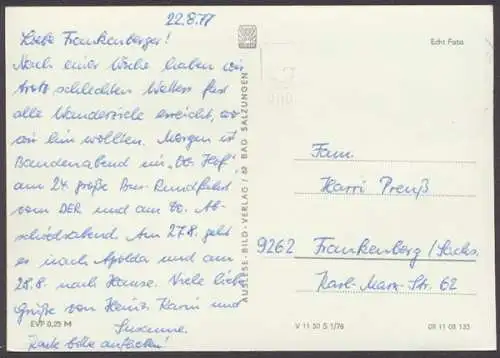 22.8.77
Liebe Frankenberger!
Nach einer Woche haben wir
trotz schlechten Wetters fast
alle Wanderziele erreicht, wo
wir hin wollten. Morgen ist
abend im „Ob. Hof",
am 24. große Bus-Rundfahrt
vom DER und am Ab-
schiedsabend. Am 27.8. geht
es nach Apolda und am
28.8. nach Hause. Viele liebe
Grüße von Heinz, Karin und
Susanne.
Karte bitte aufheben!
EVP 0,25 M
AUSLESE-BILD-VERLAG / 62 BAD SALZUNGEN
Echt Foto
Fam.
Harri Preuß
9262 Frankenberg/Sachs.
Karl-Marx-Str. 62
V 11 50 S 1/76
03 11 03 133